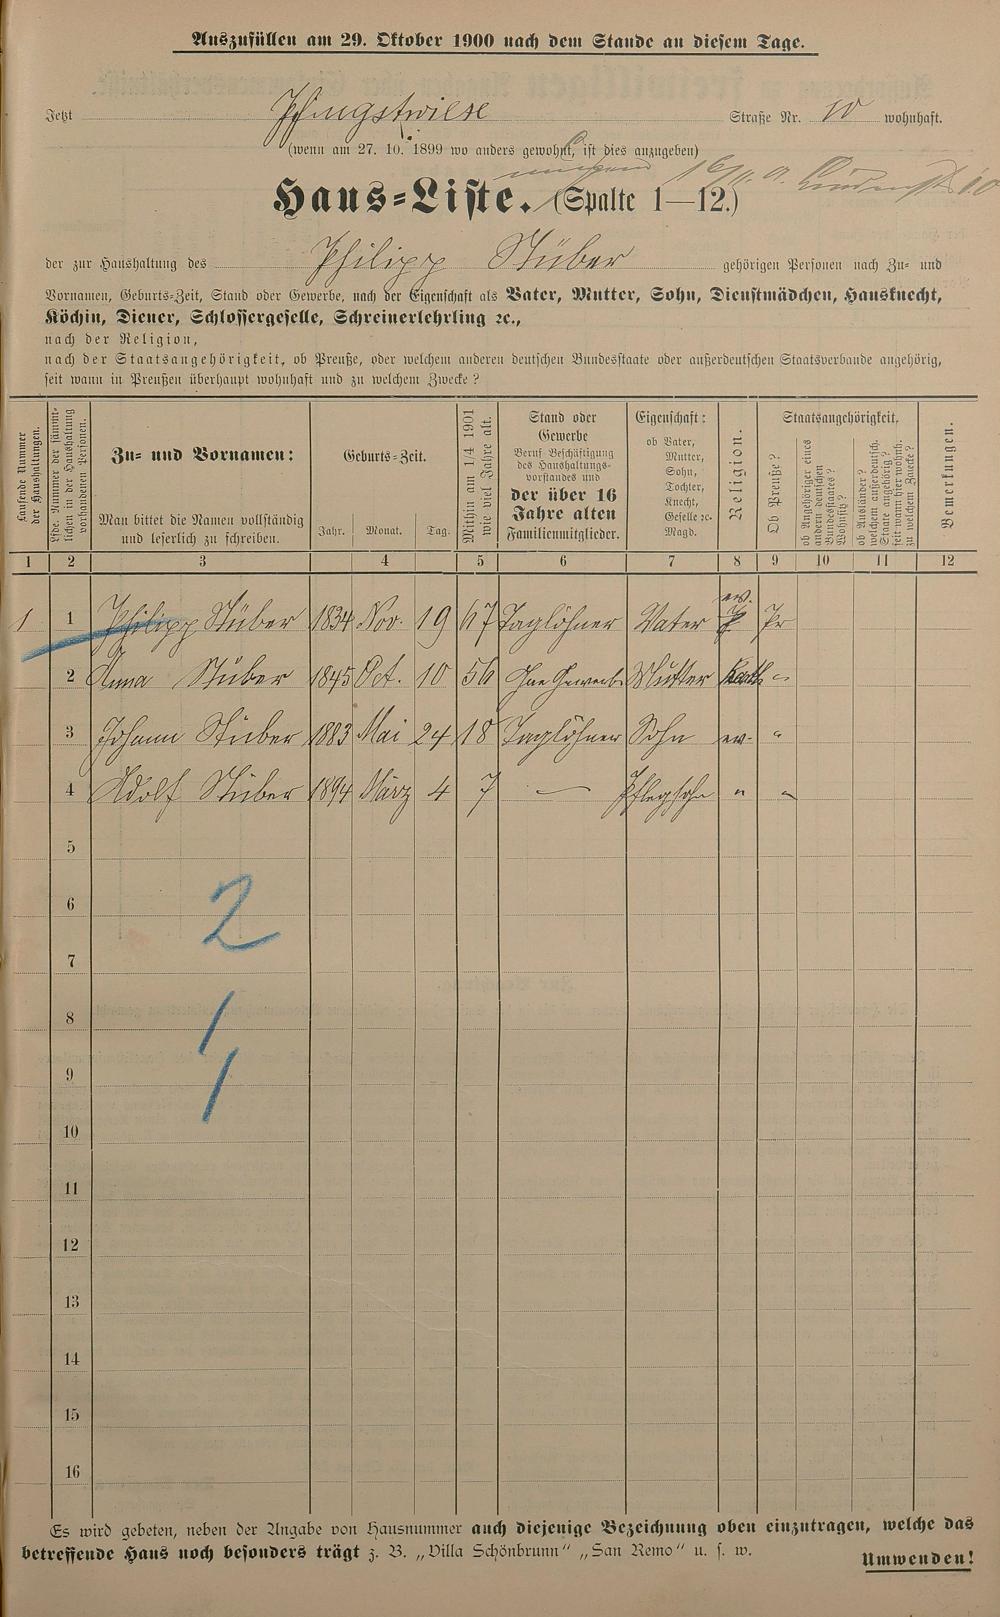 Auszufüllen am 29. Oktober 1900 nach dem Stande an diesem Tage.
Jetzt Pfingstwiese Straße Nr. 10 wohnhaft.
(wenn am 27. 10. 1899 wo anders gewohnt, ist dies anzugeben)
Haus-Liste. (Spalte 1—12.)
der zur Haushaltung des Philipp Stüber gehörigen Personen nach Zu- und
Vornamen, Geburts-Zeit, Stand oder Gewerbe, nach der Eigenschaft als Vater, Mutter, Sohn, Dienstmädchen, Hausknecht,
Köchin, Diener, Schlossergeselle, Schreinerlehrling ꝛc.,
nach der Religion,
nach der Staatsangehörigkeit, ob Preuße, oder welchem anderen deutschen Bundesstaate oder außerdeutschen Staatsverbande angehörig,
seit wann in Preußen überhaupt wohnhaft und zu welchem Zwecke?
Laufende Nummer
der Haushaltungen.
Lfde. Nummer der sämmt-
lichen in der Haushaltung
vorhandenen Personen.
Zu- und Vornamen:
Man bittet die Namen vollständig
und leserlich zu schreiben.
Geburts-Zeit.
Jahr. Monat. Tag.
Mithin am 1/4 1901
wie viel Jahre alt.
Stand oder
Gewerbe
Beruf Beschäftigung
des Haushaltungs-
vorstandes und
der über 16
Jahre alten
Familienmitglieder.
Eigenschaft:
ob Vater,
Mutter,
Sohn,
Tochter,
Knecht,
Geselle ꝛc.
Magd.
Religion.
Staatsangehörigkeit.
Ob Preuße?
ob Angehöriger eines
andern deutschen
Bundesstaates?
Wohnsitz?
ob Ausländer?
welchem außerdeutsch.
Staate angehörig?
seit wann hier wohnh.
zu welchem Zwecke?
Bemerkungen.
1 2 3 4 5 6 7 8 9 10 11 12
1 1 Philipp Stüber 1834 Nov. 19 67 Taglöhner Vater ev. Pr
2 Anna Stüber 1845 Oct. 10 56 Ohne Gewerb Mutter Kath "
3 Johann Stüber 1883 Mai 24 18 Taglöhner Sohn ev. "
4 Adolf Stüber 1894 März 4 7 — Pflegsohn " "
5
6
2
7
8
1
9
1
10
11
12
13
14
15
16
Es wird gebeten, neben der Angabe von Hausnummer auch diejenige Bezeichnung oben einzutragen, welche das
betreffende Haus noch besonders trägt z. B. „Villa Schönbrunn" „San Remo" u. s. w.
Umwenden!